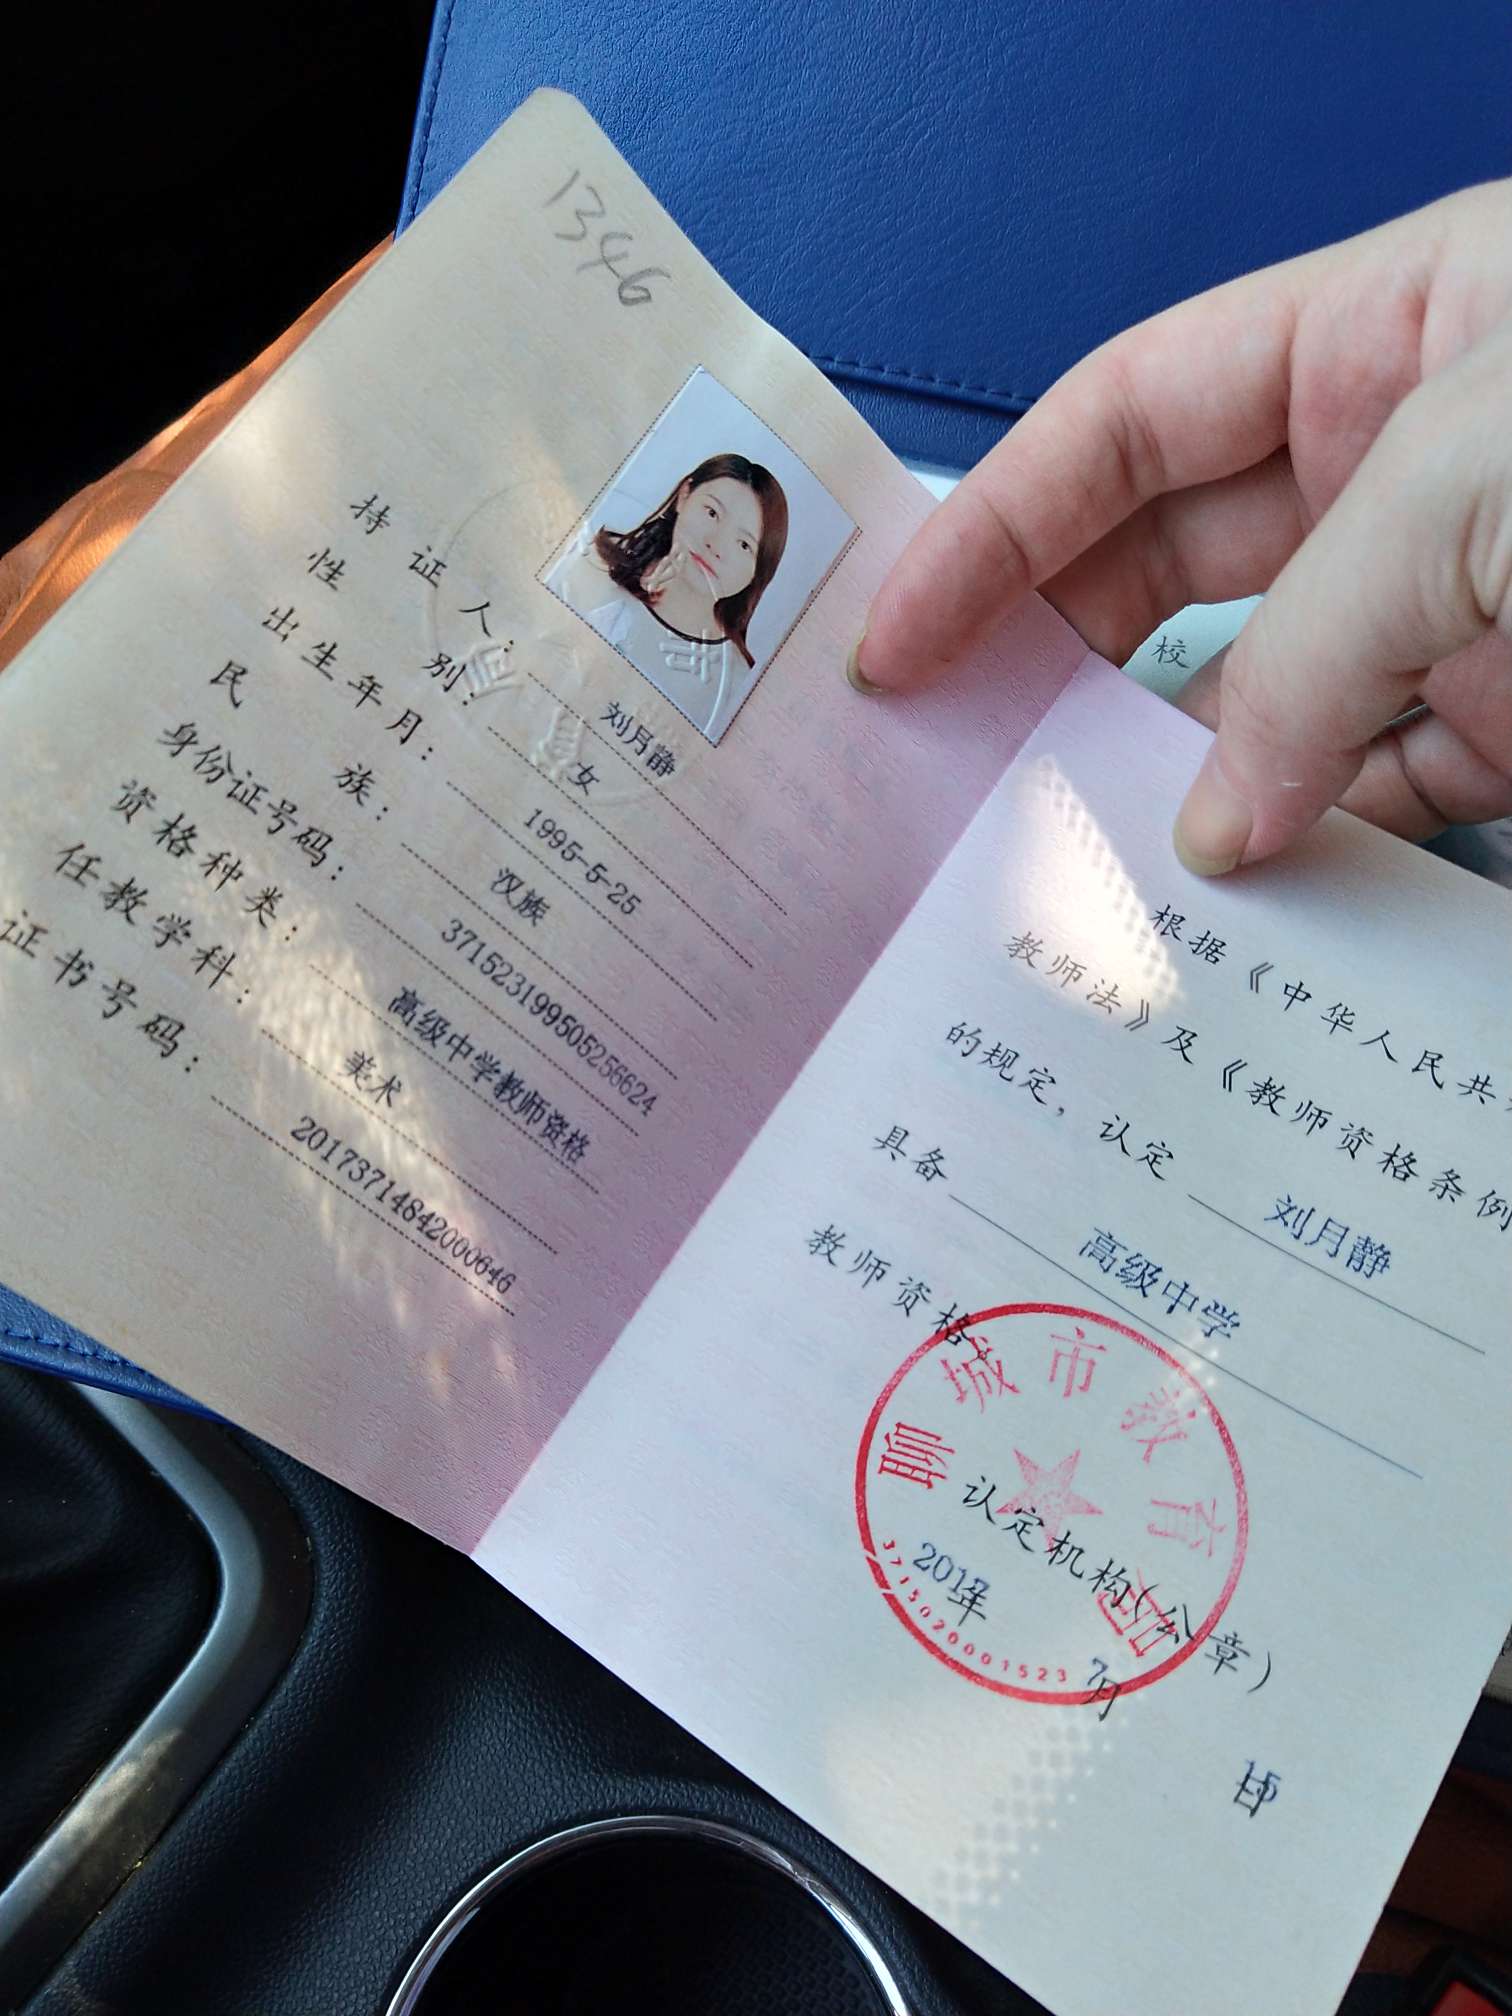 1346
持证人：刘月静
性别：女
出生年月：1995-5-25
民族：汉族
身份证号码：371523199505256624
资格种类：高级中学教师资格
任教学科：美术
证书号码：20173714842000646
校
根据《中华人民共
教师法》及《教师资格条例
的规定，认定 刘月静
具备 高级中学
教师资格。
聊城市教育局
认定机构(公章)
2017年 7月 15日
3715020001523